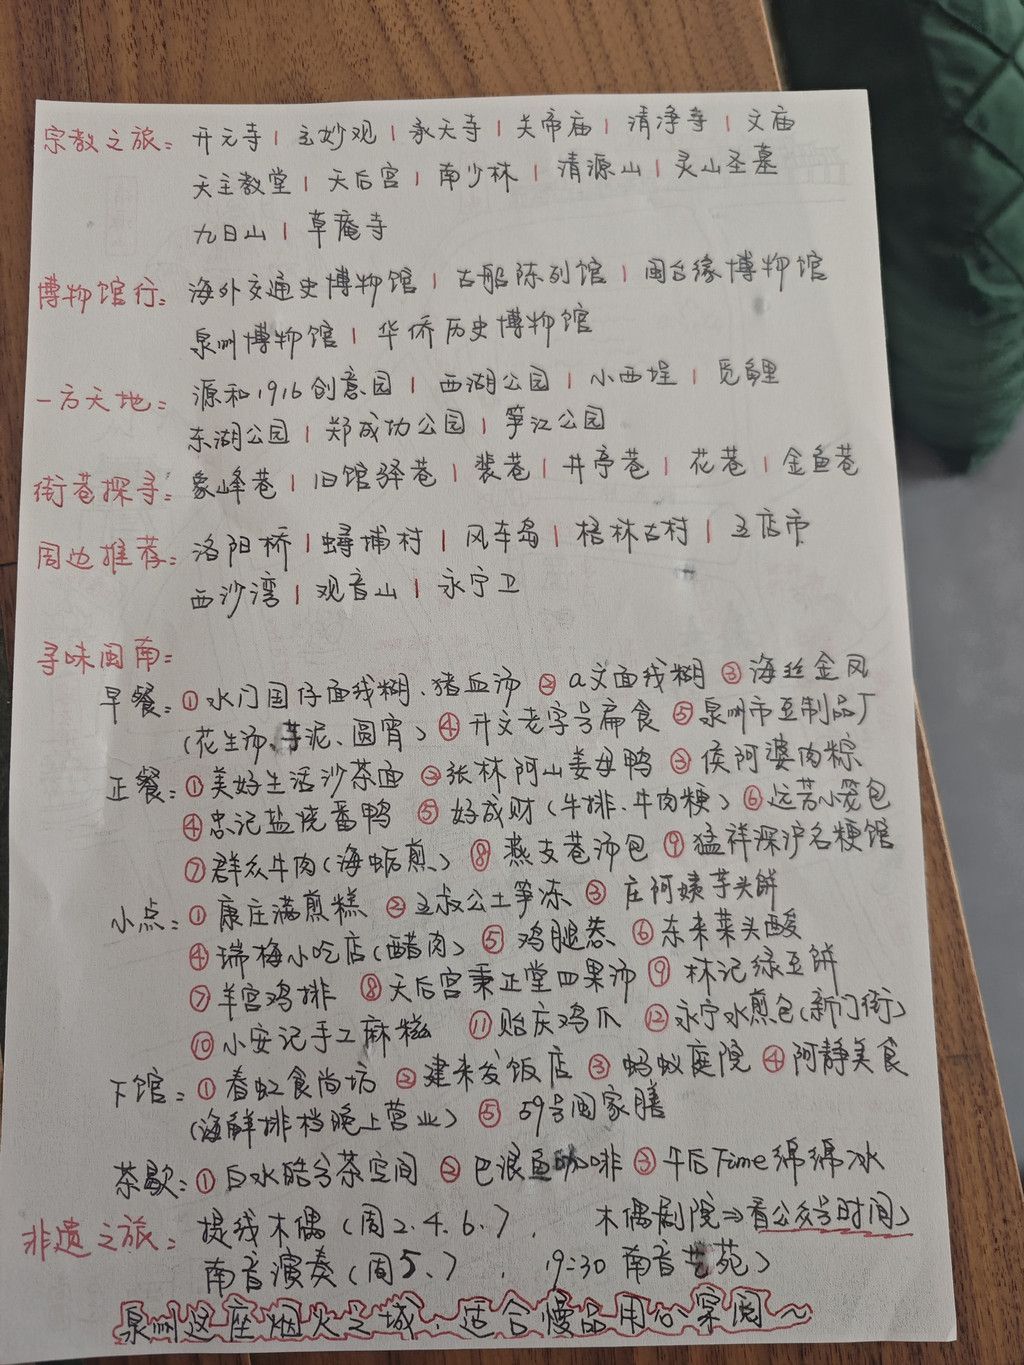 宗教之旅：开元寺｜玄妙观｜承天寺｜关帝庙｜清净寺｜文庙
天主教堂｜天后宫｜南少林｜清源山｜灵山圣墓
九日山｜草庵寺
博物馆行：海外交通史博物馆｜古船陈列馆｜闽台缘博物馆
泉州博物馆｜华侨历史博物馆
一方天地：源和1916创意园｜西湖公园｜小西埕｜觅鲤
东湖公园｜郑成功公园｜笋江公园
街巷探寻：象峰巷｜旧馆驿巷｜裴巷｜井亭巷｜花巷｜金鱼巷
周边推荐：洛阳桥｜蟳埔村｜风车岛｜梧林古村｜五店市
西沙湾｜观音山｜永宁卫
寻味闽南：
早餐：①水门国仔面线糊、猪血汤 ②a文面线糊 ③海丝金凤
(花生汤、芋泥、圆宵) ④开文老字号扁食 ⑤泉州市豆制品厂
正餐：①美好生活沙茶面 ②张林阿山姜母鸭 ③侯阿婆肉粽
④忠记盐烧番鸭 ⑤好成财(牛排、牛肉粳) ⑥远芳小笼包
⑦群众牛肉(海蛎煎) ⑧燕支巷汤包 ⑨猛祥深沪名梗馆
小点：①康庄满煎糕 ②五叔公土笋冻 ③庄阿姨芋头饼
④瑞梅小吃店(醋肉) ⑤鸡腿卷 ⑥东来菜头酸
⑦羊宫鸡排 ⑧天后宫秉正堂四果汤 ⑨林记绿豆饼
⑩小安记手工麻糍 ⑪贻庆鸡爪 ⑫永宁水煎包(新门街)
下馆：①春虹食尚坊 ②建来发饭店 ③蚂蚁庭院 ④阿静美食
(海鲜排档晚上营业) ⑤59号闽家膳
茶歇：①白水皓兮茶空间 ②巴浪鱼咖啡 ③午后Time绵绵冰
非遗之旅：提线木偶(周2.4.6.7. 木偶剧院⇒看公众号时间)
南音演奏(周5、7. 19:30 南音艺苑)
泉州这座烟火之城，适合慢品用心案阅～